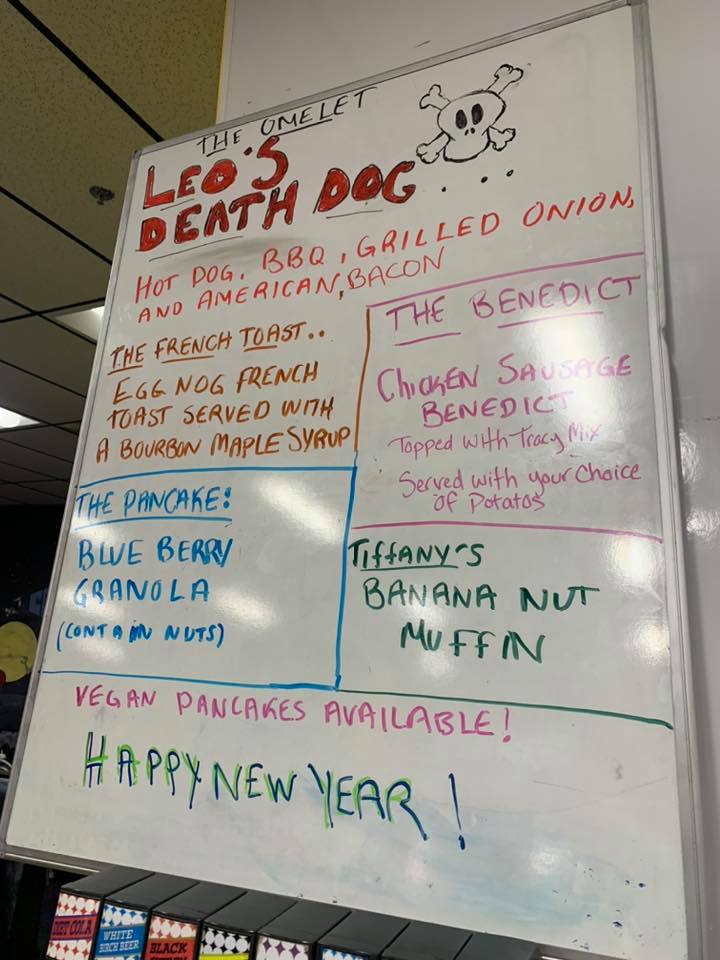 THE OMELET
LEO'S
DEATH DOG....
HOT DOG, BBQ, GRILLED ONION,
AND AMERICAN, BACON
THE FRENCH TOAST..
EGG NOG FRENCH
TOAST SERVED WITH
A BOURBON MAPLE SYRUP
THE BENEDICT
CHICKEN SAUSAGE
BENEDICT
Topped with Tracy Mix
Served with your Choice
of Potatos
THE PANCAKE:
BLUE BERRY
GRANOLA
(CONTAIN NUTS)
TIFFANY'S
BANANA NUT
MUFFIN
VEGAN PANCAKES AVAILABLE!
HAPPY NEW YEAR!
DIET COLA
WHITE
BIRCH BEER
BLACK